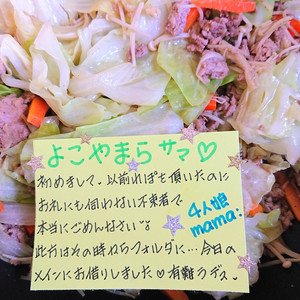 よこやまらサマ♡
初めまして。以前れぽも頂いたのに
お礼にも伺わない不束者で
本当にごめんなさい
此方はその時からフォルダに…今日の
メインにお借りしました♡有難うデス
4人娘
mama: